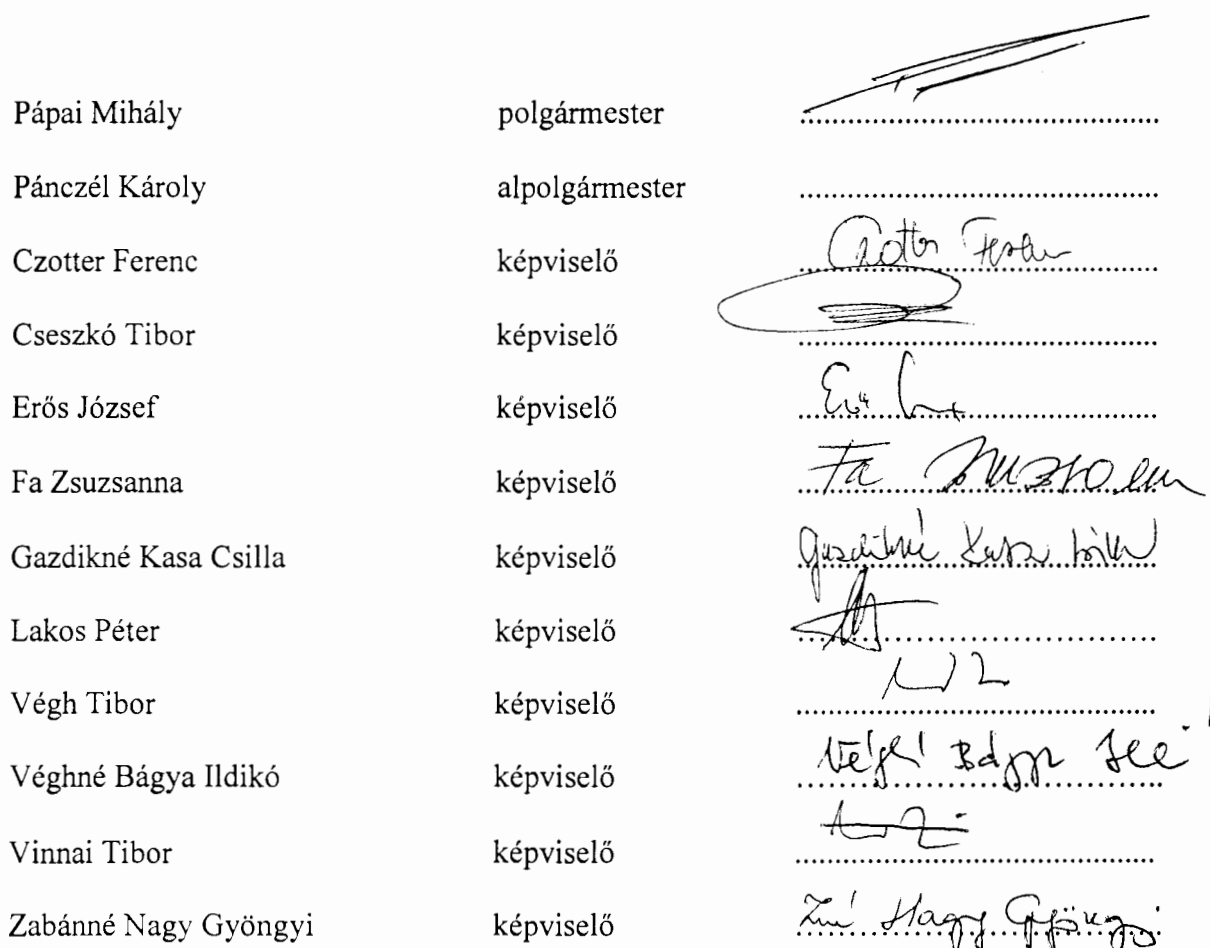 Pápai Mihály polgármester ..........
Pánczél Károly alpolgármester ..........
Czotter Ferenc képviselő Czotter Ferenc
Cseszkó Tibor képviselő ..........
Erős József képviselő Erős
Fa Zsuzsanna képviselő Fa Zsuzsanna
Gazdikné Kasa Csilla képviselő Gazdikné Kasa Csilla
Lakos Péter képviselő ..........
Végh Tibor képviselő ..........
Véghné Bágya Ildikó képviselő Végné Bágya
Vinnai Tibor képviselő ..........
Zabánné Nagy Gyöngyi képviselő Zné Nagy Gyöngyi